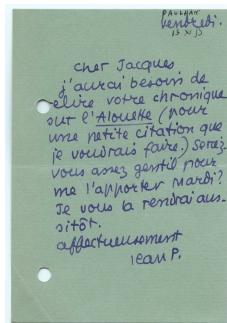 PAULHAN
Vendredi.
13 XI 53
cher Jacques
j'aurai besoin de
relire votre chronique
sur l'Alouette (pour
une petite citation que
je voudrais faire.) Serez-
vous assez gentil pour
me l'apporter mardi?
Je vous la rendrai aus-
sitôt.
affectueusement
Jean P.